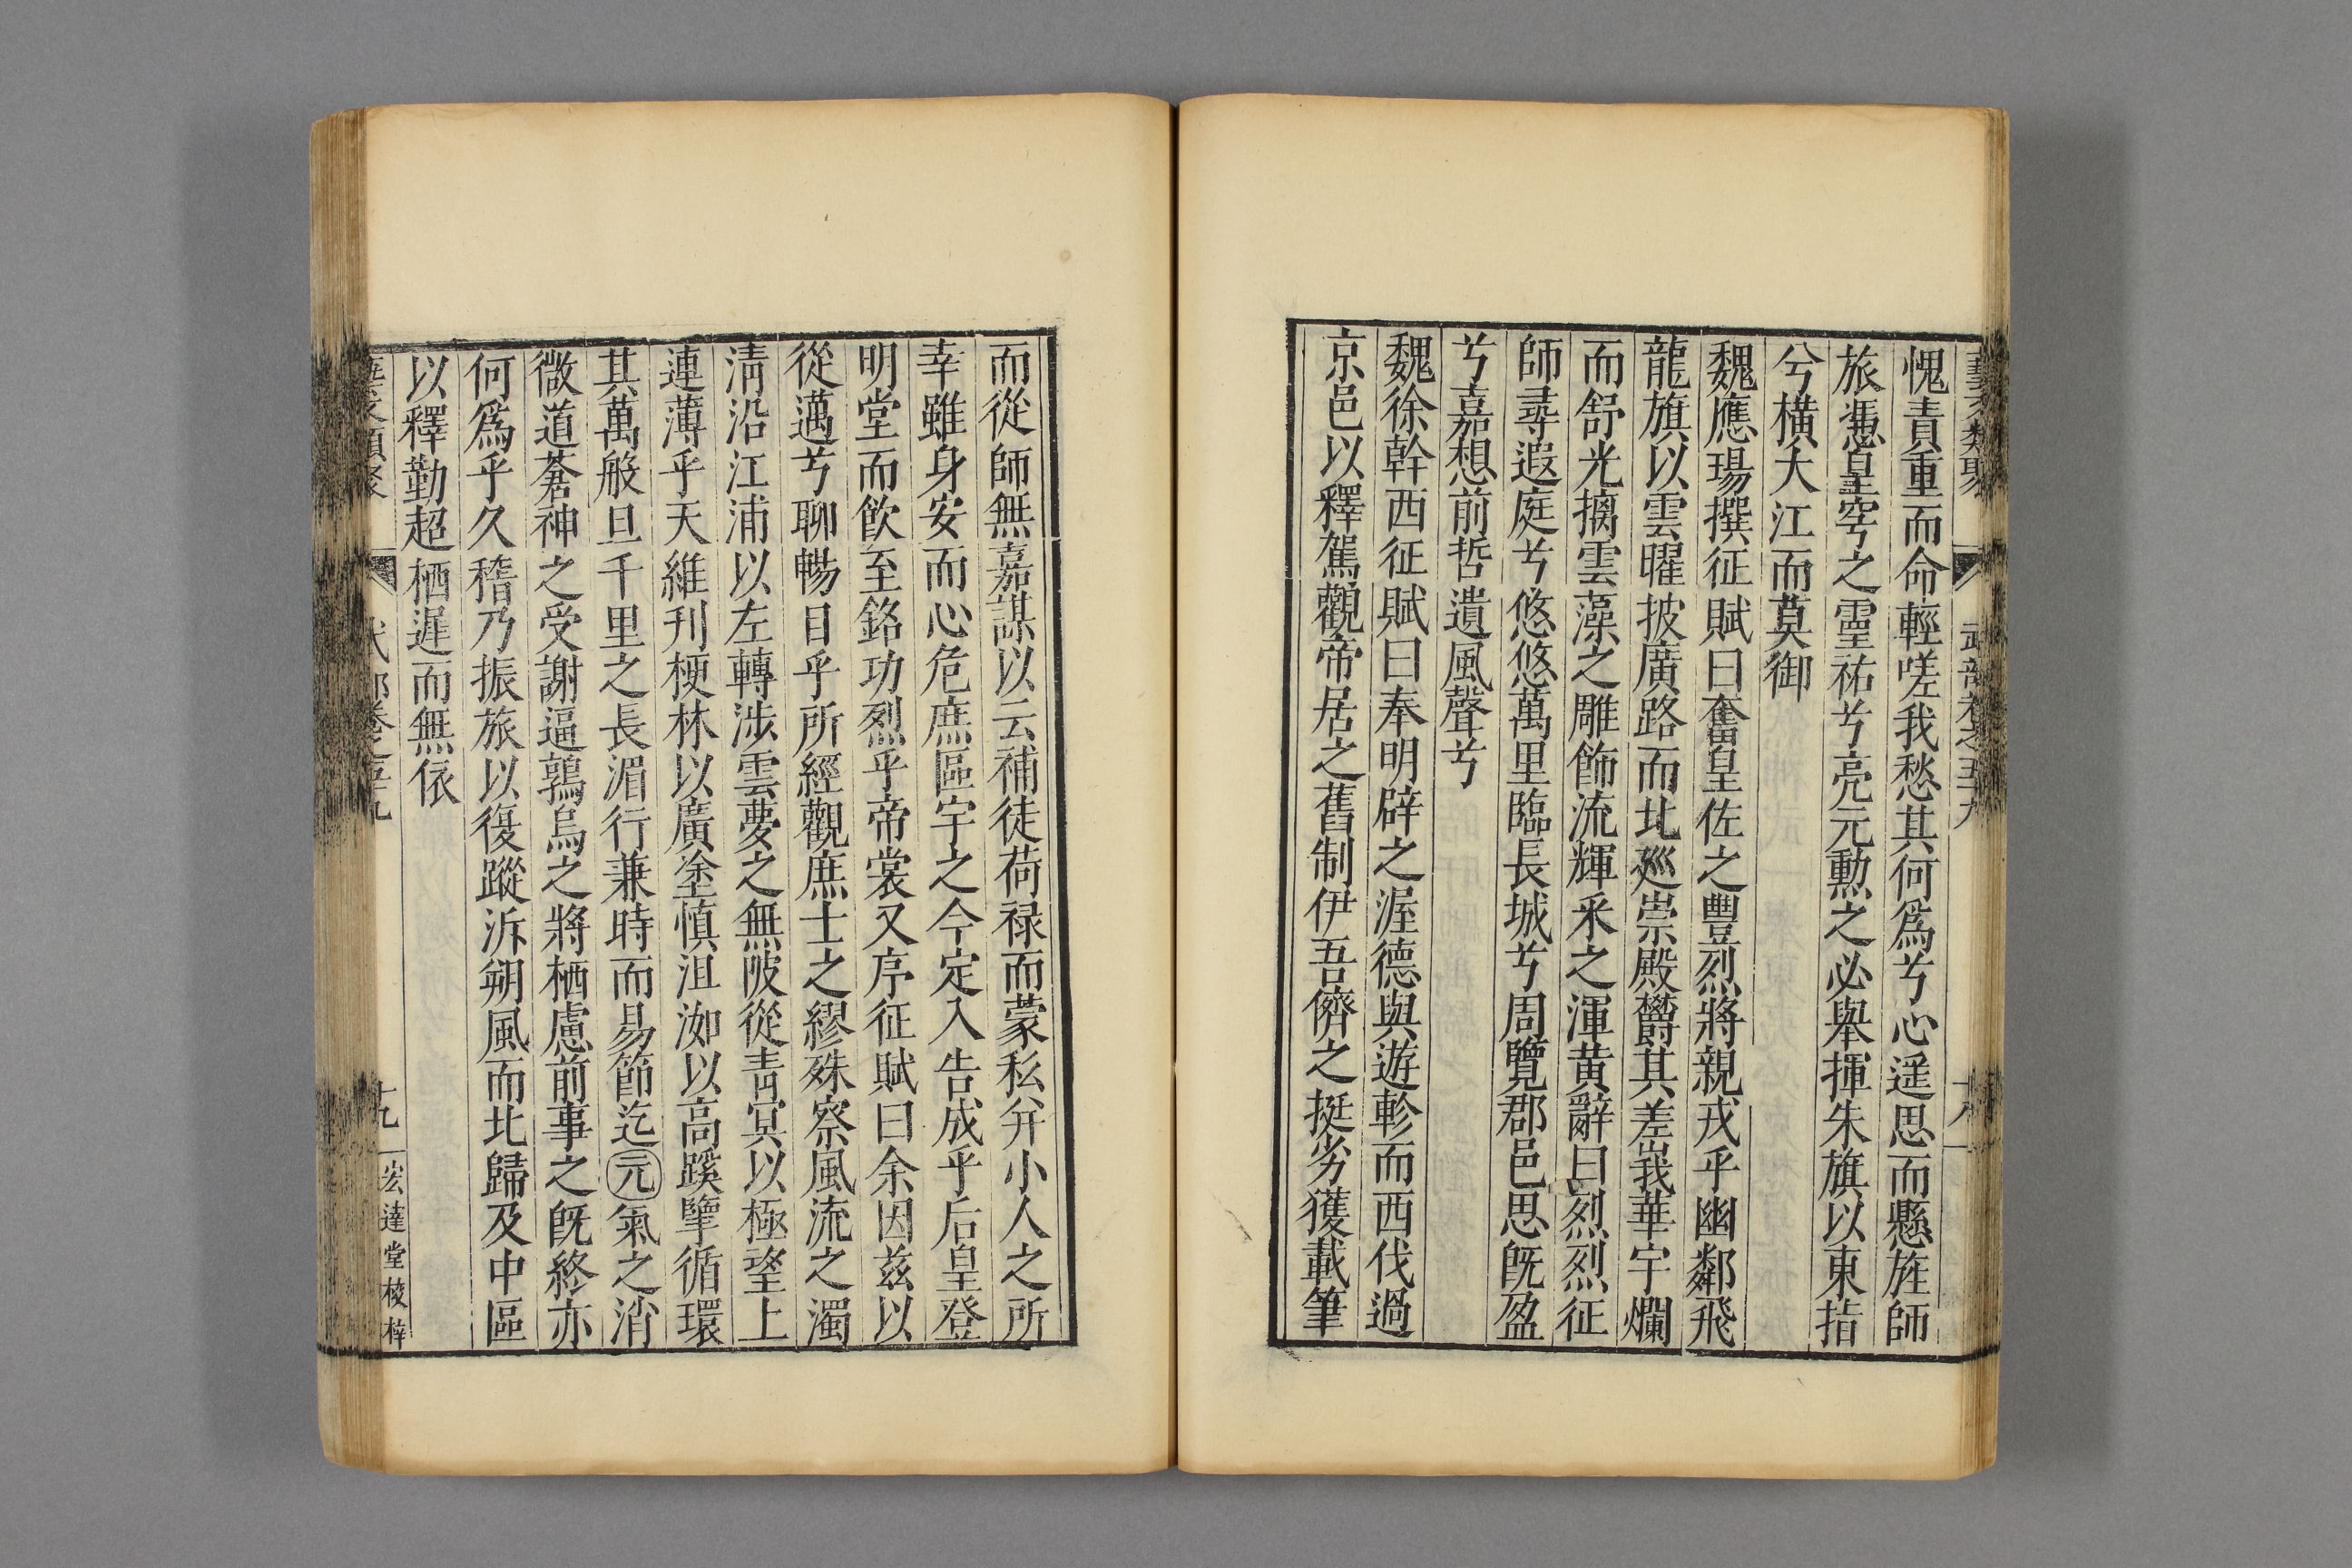 武部卷之五十九
愧責重而命輕嗟我愁其何爲兮心遥思而懸旌師
旅憑皇穹之靈祐兮亮元勲之必舉揮朱旗以東指
兮橫大江而莫御
魏應瑒撰征賦曰奮皇佐之豐烈將親戎乎幽鄰飛
龍旗以雲曜披廣路而北廵崇殿欝其嵳峩華宇爛
而舒光摛雲藻之雕飾流輝釆之渾黄辭曰烈烈征
師尋遐庭兮悠悠萬里臨長城兮周覽郡邑思旣盈
兮嘉想前哲遺風聲兮
魏徐幹西征賦曰奉明辟之渥德與遊軫而西伐過
京邑以釋駕觀帝居之舊制伊吾儕之挻劣獲載筆
而從師無嘉謀以云補徒荷禄而蒙私弁小人之所
幸雖身安而心危庶區宇之今定入告成乎后皇登
明堂而飮至銘功烈乎帝裳又序征賦曰余因茲以
從邁兮聊暢目乎所經觀庶士之繆殊察風流之濁
淸沿江浦以左轉涉雲夢之無陂從靑冥以極望上
連薄乎天維刋梗林以廣塗慎沮洳以高蹊擥循環
其萬艘亘千里之長湄行兼時而易節迄元氣之消
微道蒼神之受謝逼鶉鳥之將栖慮前事之旣終亦
何爲乎久稽乃振旅以復蹤泝朔風而北歸及中區
以釋勤超栖遲而無依
十九
宏達堂校梓